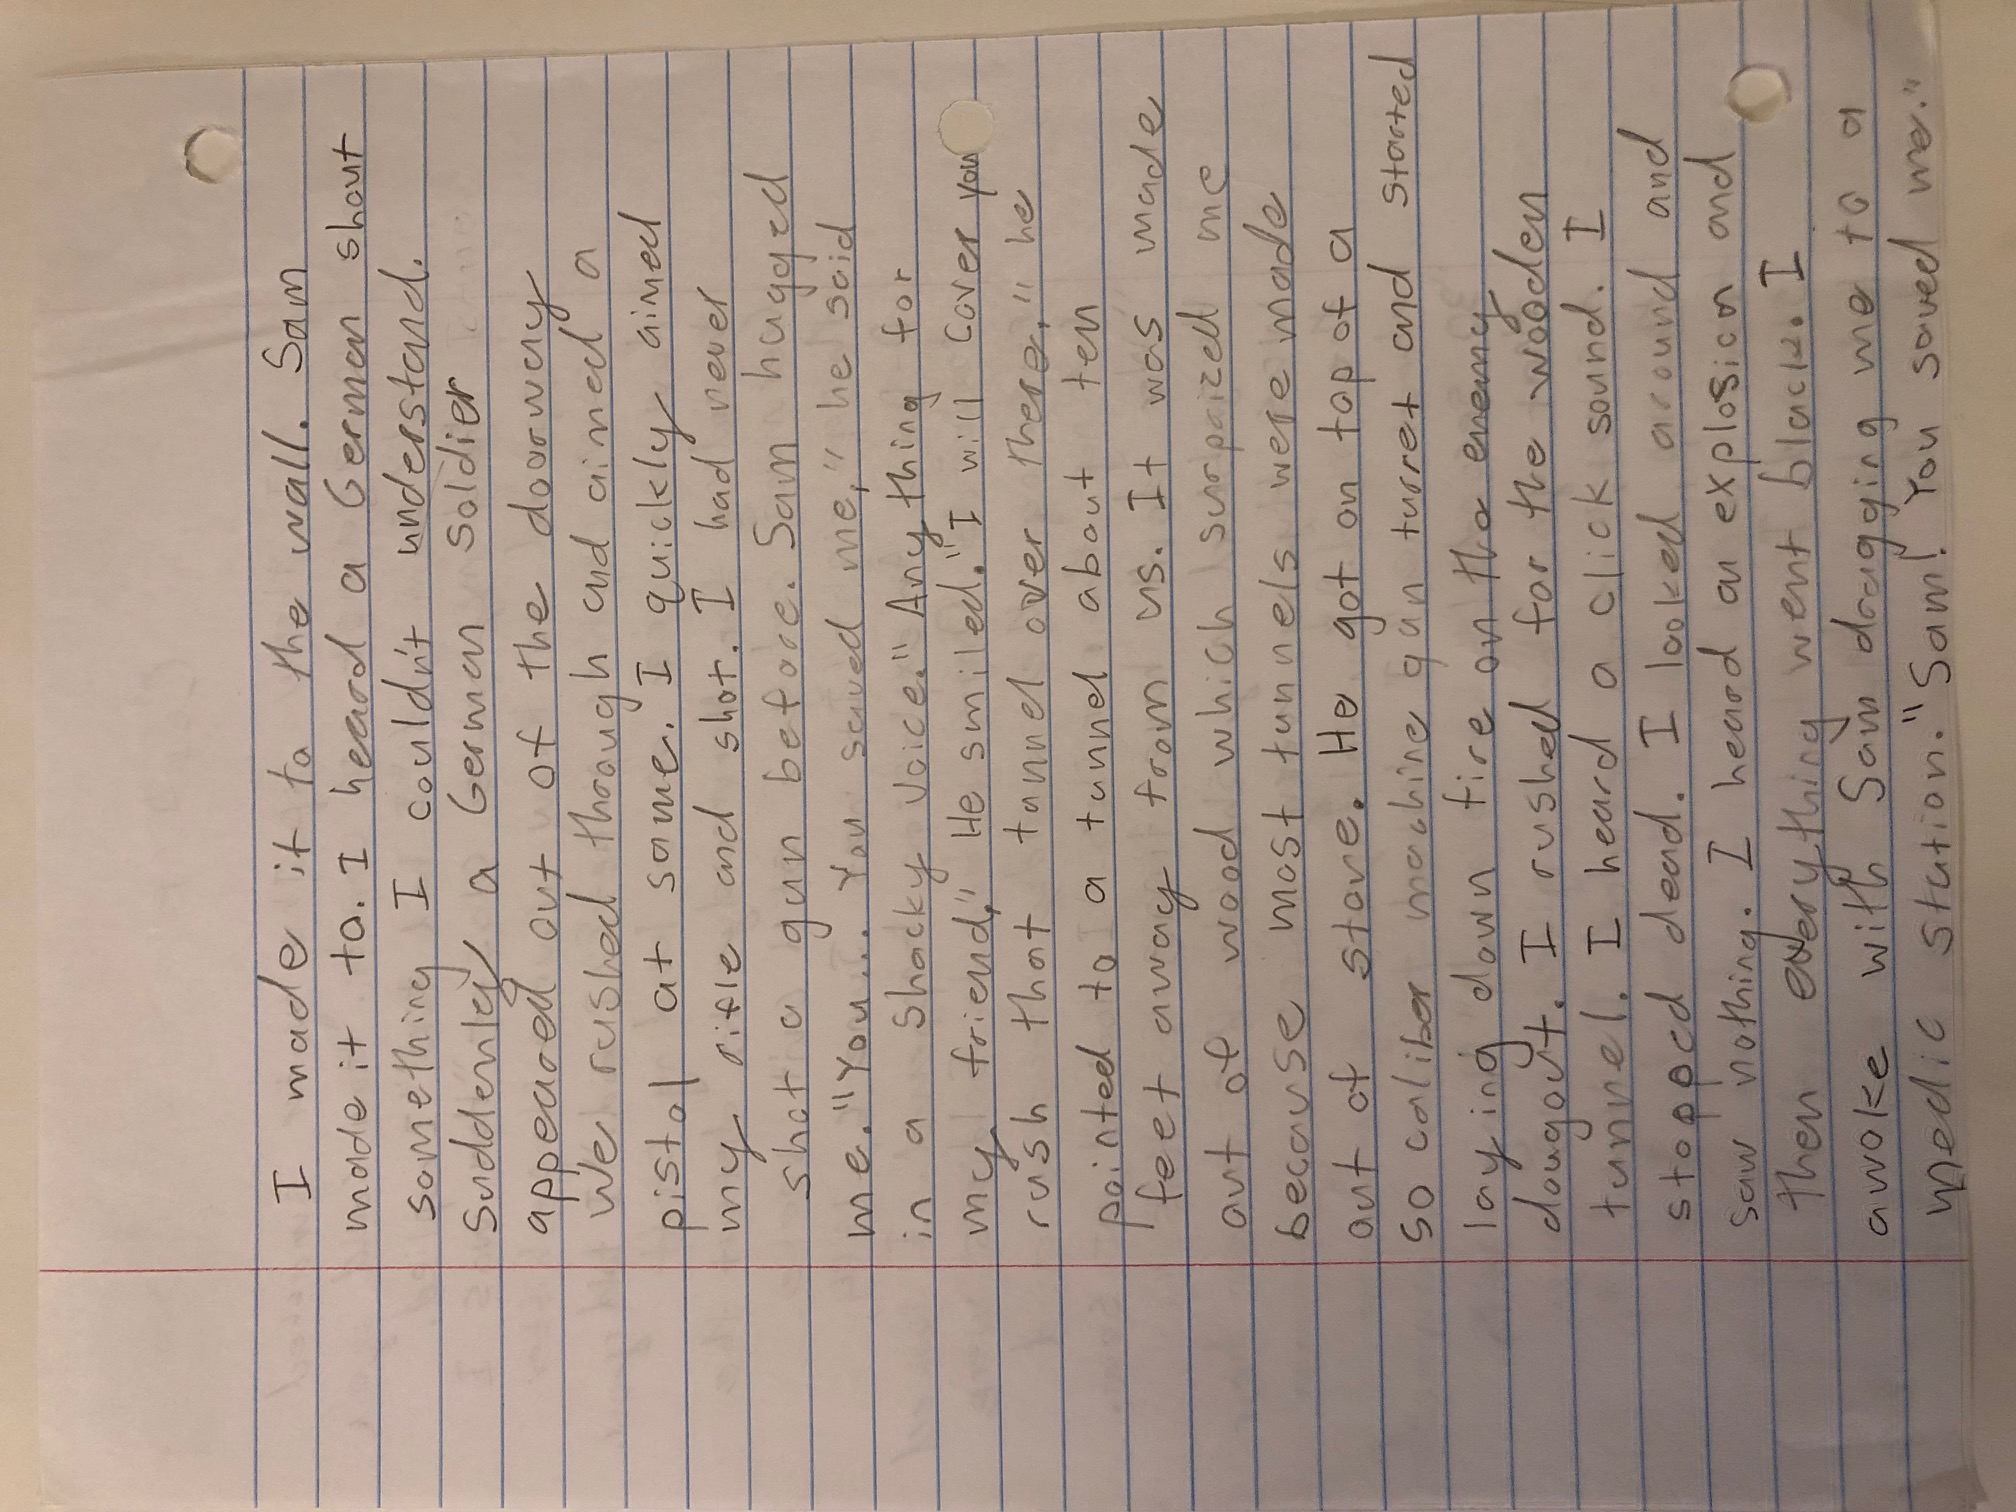 I made it to the wall. Sam
made it to. I heard a German shout
something I couldn't understand.
Suddenley a German soldier
appeared out of the doorway
We rushed through and aimed a
pistol at same. I quickly aimed
my rifle and shot. I had never
shot a gun before. Sam hugged
me. "You... You saved me," he said
in a shacky voice. "Any thing for
my friend," He smiled. "I will cover you
rush that tunnel over there," he
pointed to a tunnel about ten
feet away from us. It was made
out of wood which surprized me
because most tunnels were made
out of stone. He got on top of a
50 caliber machine gun turret and started
laying down fire on the enemy
dougout. I rushed for the wooden
tunnel. I heard a click sound. I
stopped dead. I looked around and
saw nothing. I heard an explosion and
then everything went black. I
awoke with Sam dragging me to a
medic station. "Sam! You saved me."